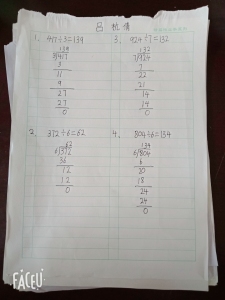 吕
情
1、 417÷3=139
139
3/417
3
11
9
27
27
0
3、 924÷7=132
132
7/924
7
22
21
14
14
0
2、 372÷6=62
62
6/372
36
12
12
0
4、 804÷6=134
134
6/804
6
20
18
24
24
0
FACEU